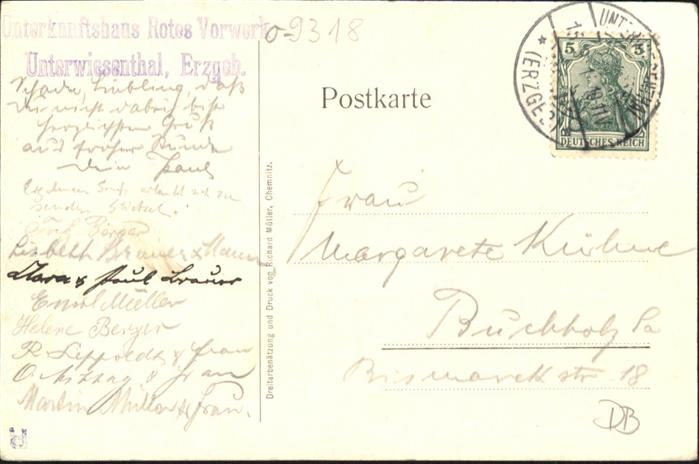 Unterkunftshaus Rotes Vorwerk
Unterwiesenthal, Erzgeb.
0-9318
Schade, Liebling, daß
Du nicht dabei bist
herzlichsten Gruß
aus froher Runde
Dein Paul
senden
Lisbeth Brauer & Mann
Clara & Paul Brauer
Emil Müller
Helene Berger
R. Lippoldt & Frau
O. & Frau
Martin Müller & Frau.
Dreifarbenätzung und Druck von Richard Müller, Chemnitz.
Postkarte
5 5
DEUTSCHES REICH
(ERZGEB.)
Frau
Margarete Kühne
Buchholz Sa
Bismarckstr. 18
DB